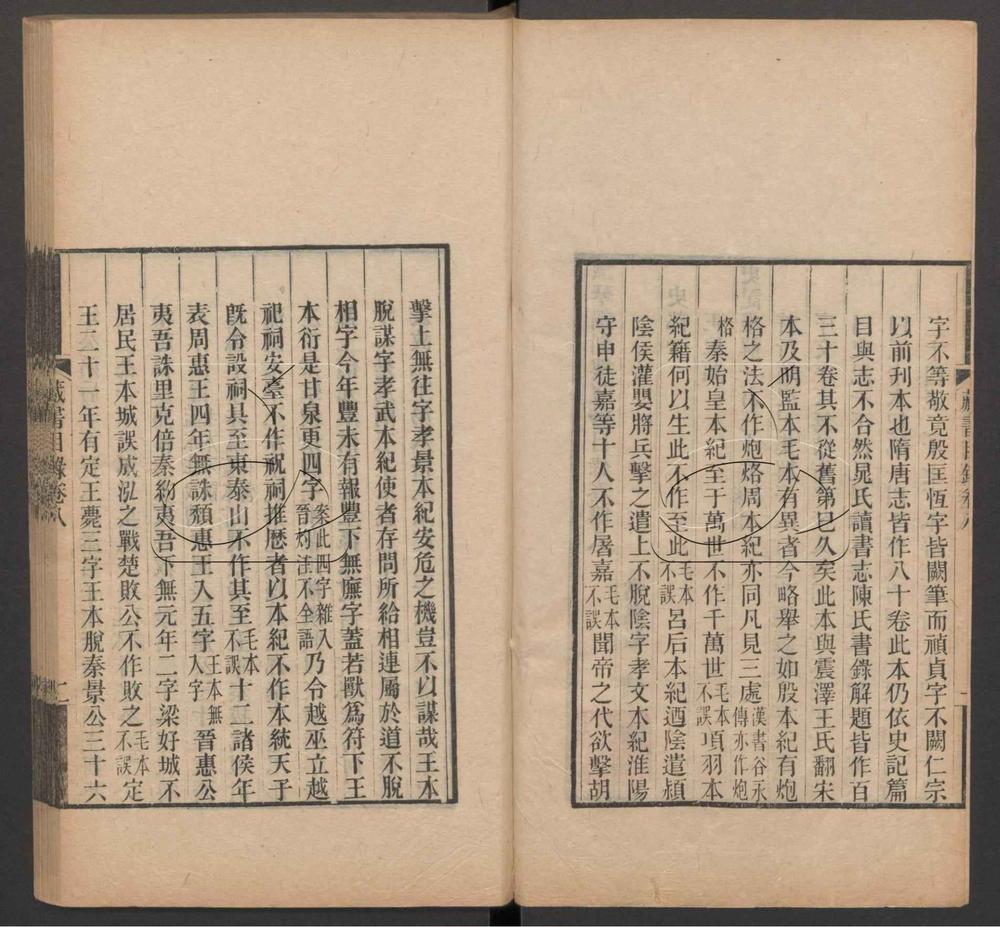 字不等敬竟殷匡恆字皆闕筆而禎貞字不闕仁宗
以前刊本也隋唐志皆作八十卷此本仍依史記篇
目與志不合然晁氏讀書志陳氏書錄解題皆作百
三十卷其不從舊第已久矣此本與震澤王氏翻宋
本及明監本毛本有異者今略舉之如殷本紀有炮
格之法不作炮烙周本紀亦同凡見三處漢書谷永傳亦作炮
格秦始皇本紀至于萬世不作千萬世毛本不誤項羽本
紀籍何以生此不作至此毛本不誤呂后本紀迺陰遣潁
陰侯灌嬰將兵擊之遣上不脫陰字孝文本紀淮陽
守申徒嘉等十人不作屠嘉毛本不誤聞帝之代欲擊胡
藏書目錄卷八
擊上無往字孝景本紀安危之機豈不以謀哉王本
脫謀字孝武本紀使者存問所給相連屬於道不脫
相字今年豐楙未有報豐下無廡字蓋若獸爲符下王
本衍是甘泉更四字案此四字雜入晉灼注不全語乃令越巫立越
祀祠安臺不作祝祠推歷者以本紀不作本統天子
旣令設祠具至東泰山不作其至毛本不誤十二諸侯年
表周惠王四年無誅穨惠王入五字王本無入字晉惠公
夷吾誅里克倍秦約夷吾下無元年二字梁好城不
居民王本城誤成泓之戰楚敗公不作敗之毛本不誤定
王二十一年有定王薨三字王本脫秦景公三十六
藏書目錄卷八
二